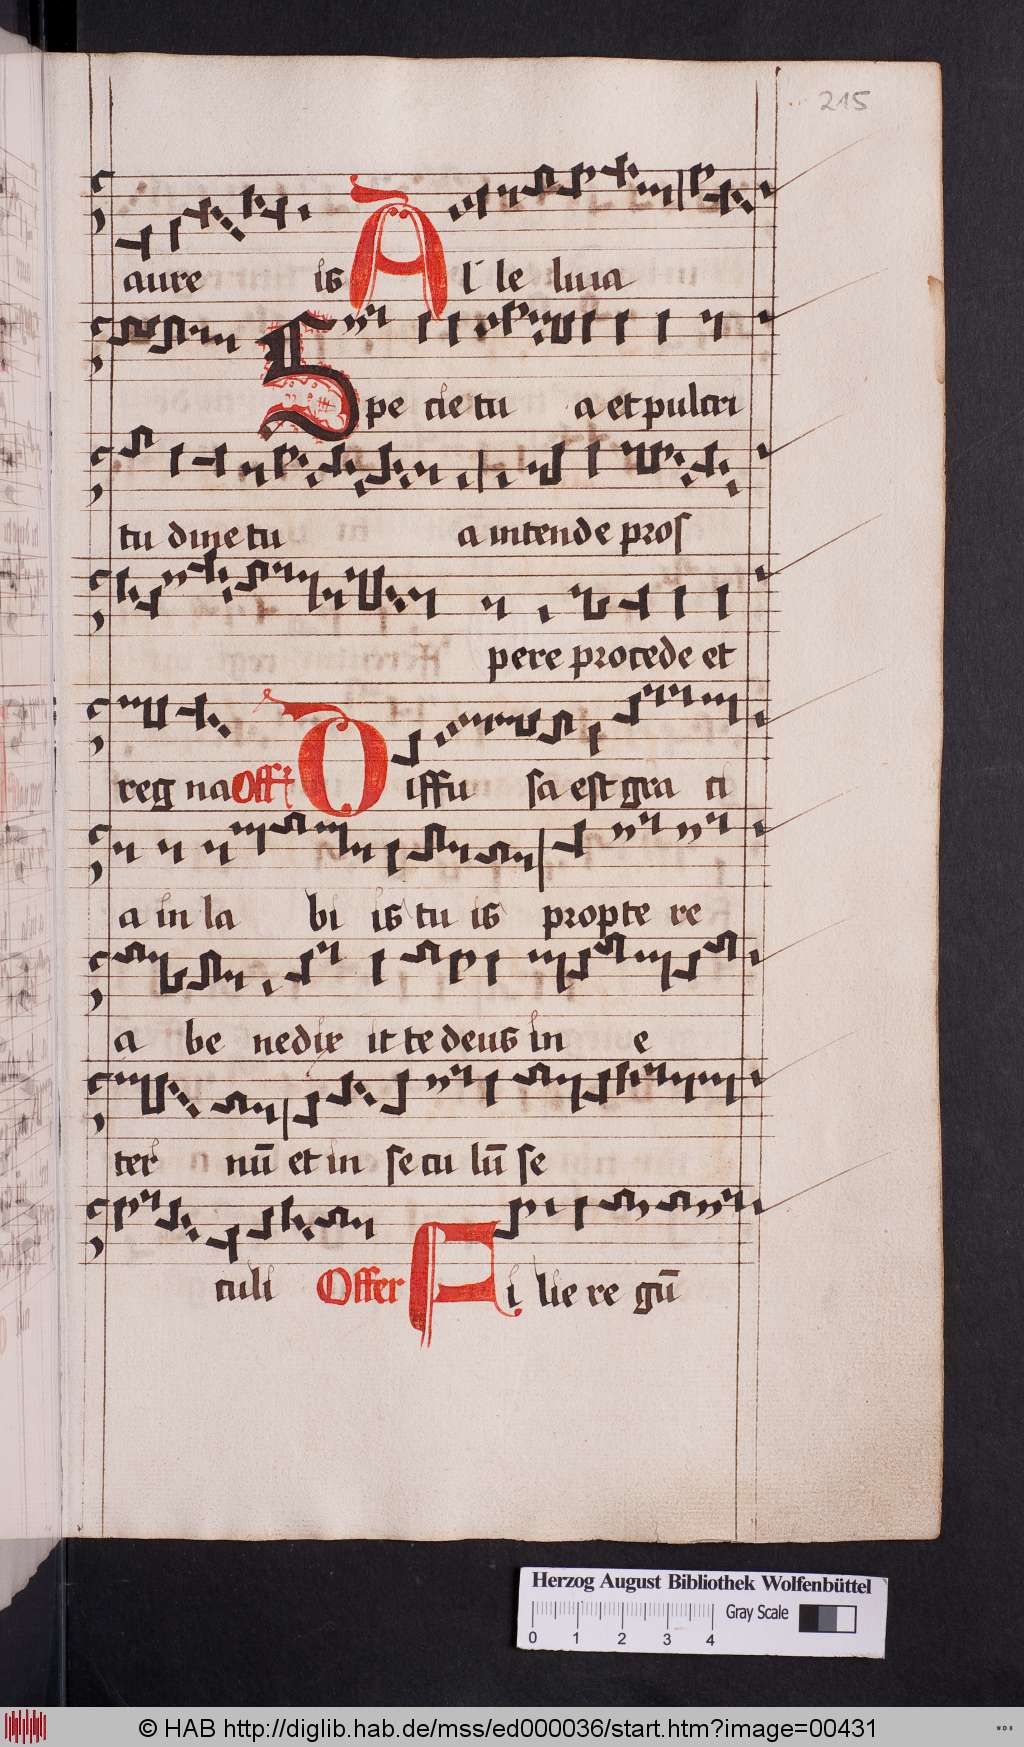 215
aure is Al le luia
Spe cie tu a et pulcri
tu dine tu a intende pros
pere procede et
reg na Off Diffu sa est gra ci
a in la bi is tu is propte re
a be nedix it te deus in e
ter nū et in se cu lū se
culi Offer Fi lie re gū
Herzog August Bibliothek Wolfenbüttel
Gray Scale
0 1 2 3 4
© HAB http://diglib.hab.de/mss/ed000036/start.htm?image=00431